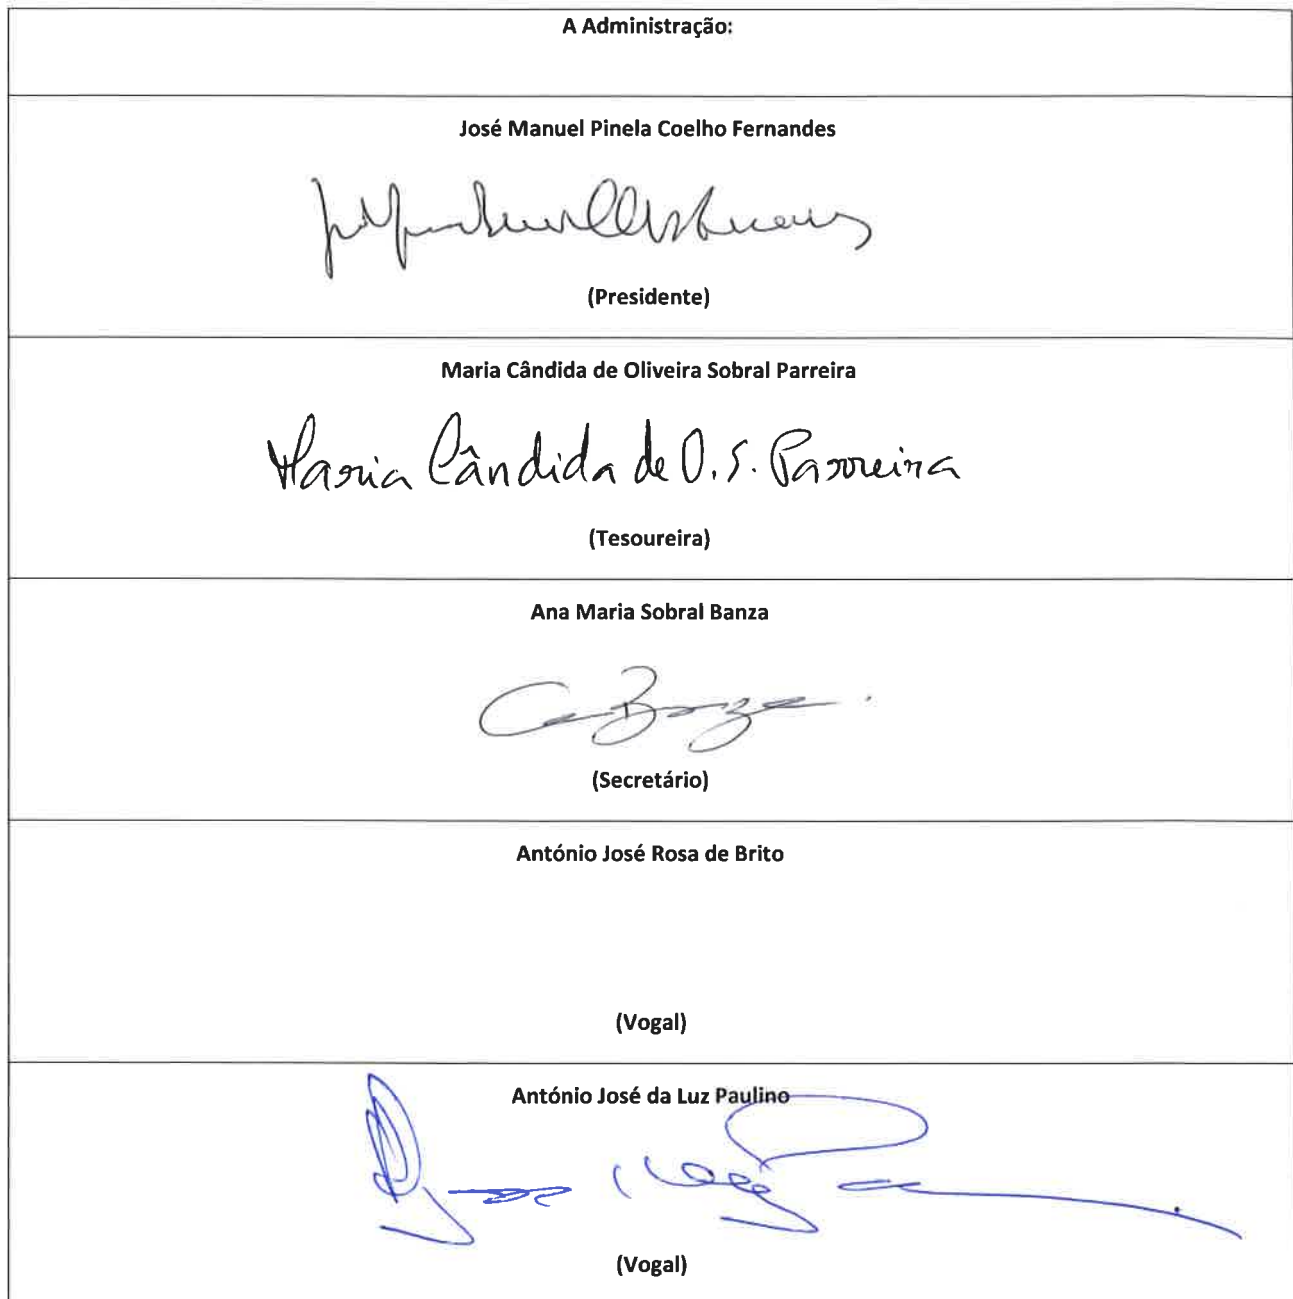 A Administração:
José Manuel Pinela Coelho Fernandes
(Presidente)
Maria Cândida de Oliveira Sobral Parreira
Maria Cândida de O. S. Parreira
(Tesoureira)
Ana Maria Sobral Banza
Banza
(Secretário)
António José Rosa de Brito
(Vogal)
António José da Luz Paulino
(Vogal)